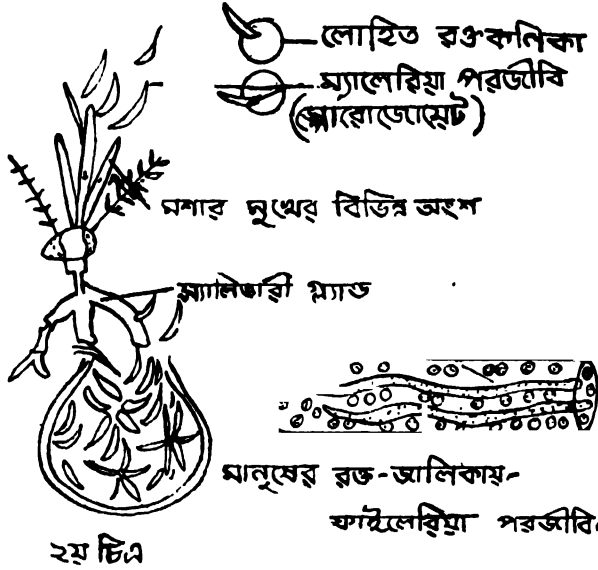 লোহিত রক্তকণিকা
ম্যালেরিয়া পরজীবি
(স্পোরোজোয়েট)
মশার মুখের বিভিন্ন অংশ
স্যালিভারী গ্ল্যান্ড
মানুষের রক্ত-জালিকায়-
ফাইলেরিয়া পরজীবি.
২য় চিত্র